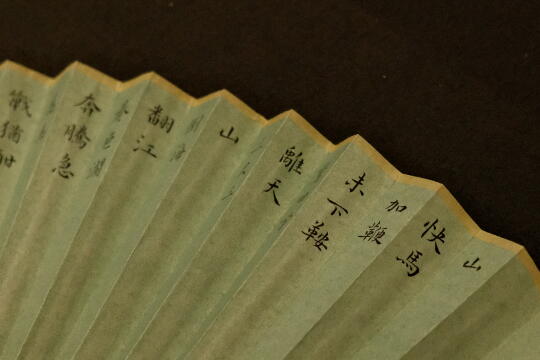 山
快馬
加鞭
未下鞍
離天
山
翻江
奔騰急
戰猶酣